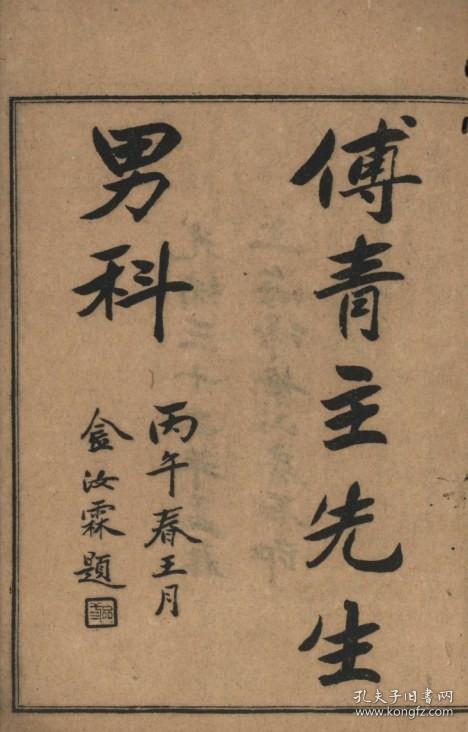 傅青主先生
男科
丙午春王月
金汝霖題
孔夫子旧书网
www.kongfz.com